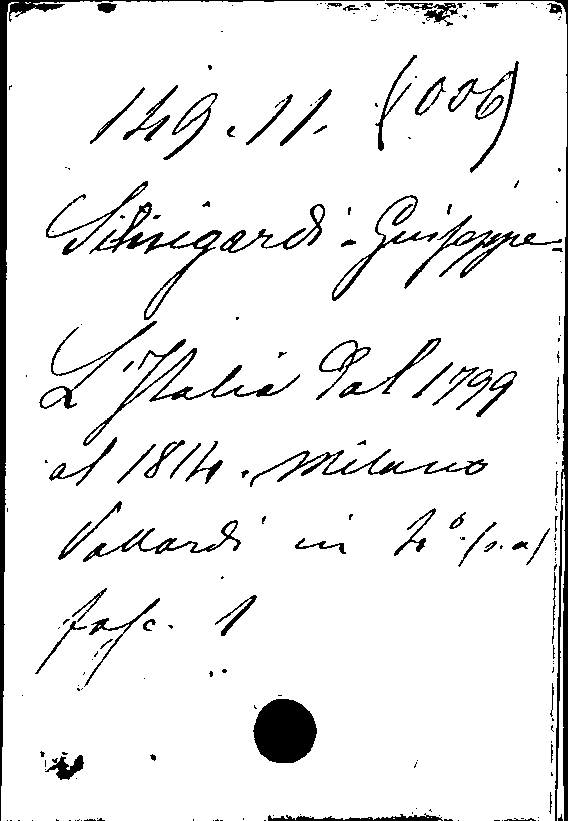 149.11. (006)
Silingardi - Giuseppe -
L'Italia dal 1799
al 1814. Milano
Vallardi in 4°. (s.a)
fasc. 1